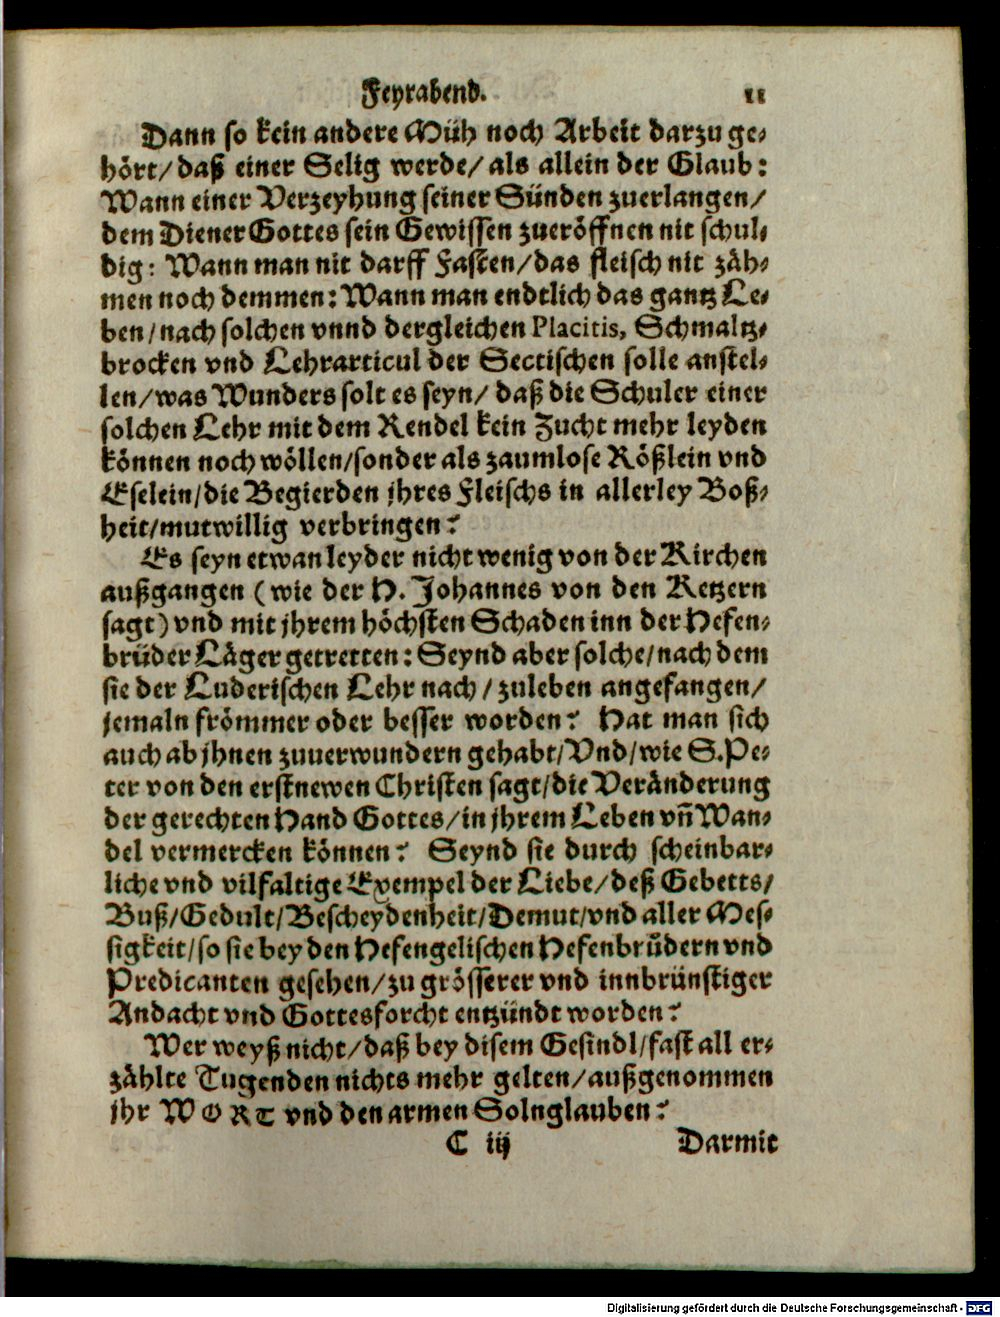 Feyrabend. 11
Dann so kein andere Müh noch Arbeit darzu ge-
hört/ daß einer Selig werde/ als allein der Glaub:
Wann einer Verzeyhung seiner Sünden zuerlangen/
dem Diener Gottes sein Gewissen zueröffnen nit schul-
dig: Wann man nit darff Fasten/ das fleisch nit zäh-
men noch demmen: Wann man endtlich das gantz Le-
ben/ nach solchen vnnd dergleichen Placitis, Schmaltz-
brocken vnd Lehrarticul der Sectischen solle anstel-
len/ was Wunders solt es seyn/ daß die Schuler einer
solchen Lehr mit dem Rendel kein Zucht mehr leyden
können noch wöllen/ sonder als zaumlose Rößlein vnd
Eselein/ die Begierden jhres Fleischs in allerley Boß-
heit/ mutwillig verbringen?
Es seyn etwan leyder nicht wenig von der Kirchen
außgangen (wie der H. Johannes von den Ketzern
sagt) vnd mit jhrem höchsten Schaden inn der Hefen-
brüder Läger getretten: Seynd aber solche/ nach dem
sie der Luderischen Lehr nach/ zuleben angefangen/
jemaln frömmer oder besser worden? Hat man sich
auch ab jhnen zuuerwundern gehabt/ Vnd/ wie S. Pe-
ter von den erstnewen Christen sagt/ die Veränderung
der gerechten Hand Gottes/ in jhrem Leben vn̄ Wan-
del vermercken können? Seynd sie durch scheinbar-
liche vnd vilfaltige Exempel der Liebe/ deß Gebetts/
Buß/ Gedult/ Bescheydenheit/ Demut/ vnd aller Mes-
sigkeit/ so sie bey den Hefengelischen Hefenbrüdern vnd
Predicanten gesehen/ zu grösserer vnd innbrünstiger
Andacht vnd Gottesforcht entzündt worden?
Wer weyß nicht/ daß bey disem Gesindl/ fast all er-
zählte Tugenden nichts mehr gelten/ außgenommen
jhr WORT vnd den armen Solnglauben?
C iij Darmit
Digitalisierung gefördert durch die Deutsche Forschungsgemeinschaft - DFG